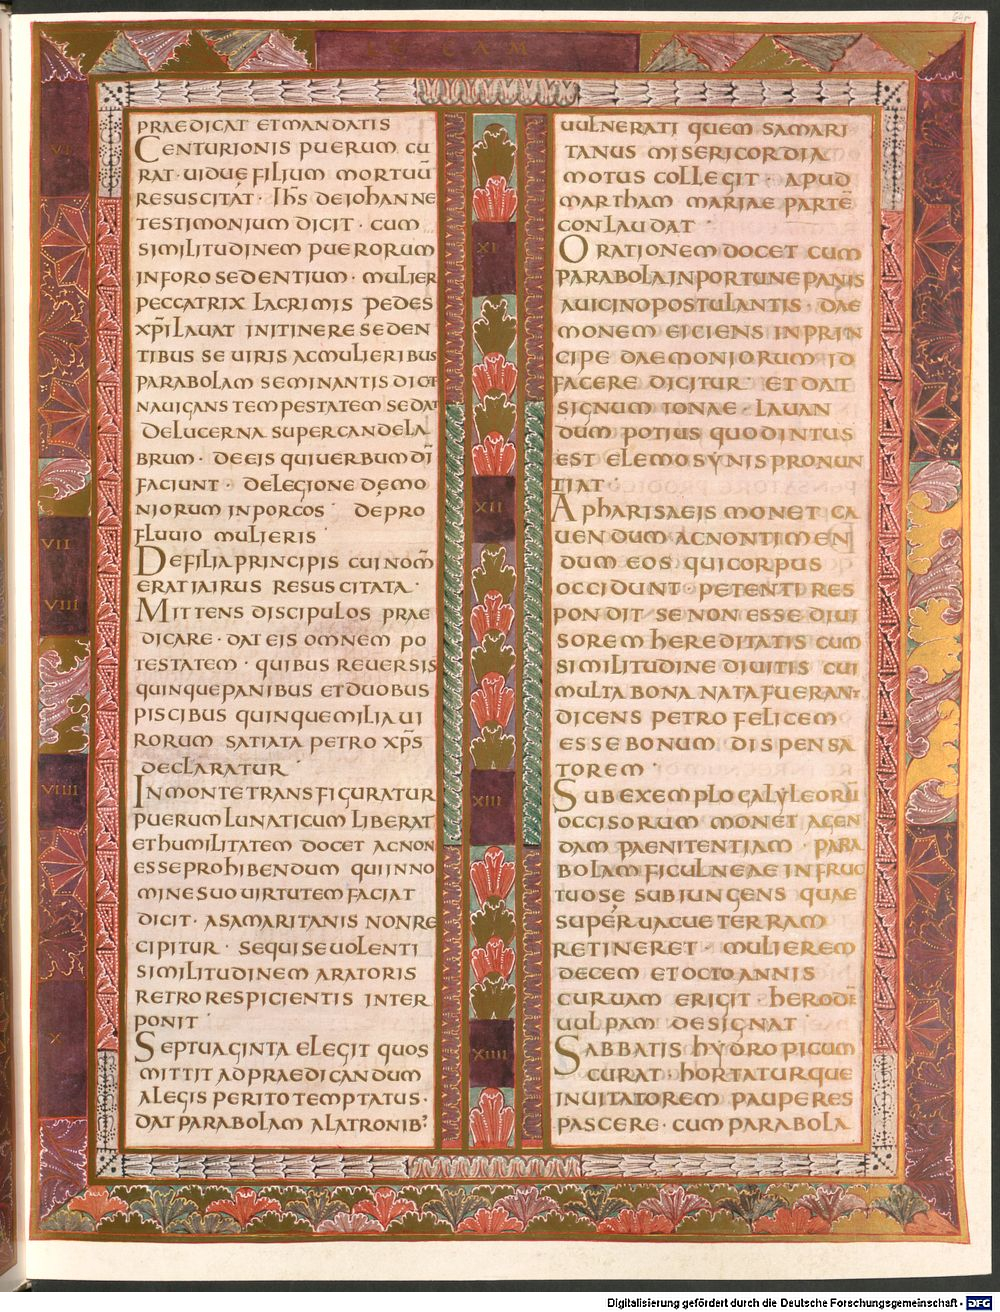 LUCAM
PRAEDICAT ET MANDATIS
VI CENTURIONIS PUERUM CU
RAT · UIDUĘ FILIUM MORTUŪ
RESUSCITAT · IHS DE IOHANNE
TESTIMONIUM DICIT · CUM
SIMILITUDINEM PUERORUM
IN FORO SEDENTIUM · MULIER
PECCATRIX LACRIMIS PEDES
XPI LAUAT IN ITINERE SEDEN
TIBUS SE UIRIS AC MULIERIBUS
PARABOLAM SEMINANTIS DICIT
NAUIGANS TEMPESTATEM SEDAT
DE LUCERNA SUPER CANDELA
BRUM · DE EIS QUI UERBUM DĪ
FACIUNT · DE LEGIONE DĘMO
NIORUM IN PORCOS · DE PRO
FLUUIO MULIERIS
VII DE FILIA PRINCIPIS CUI NOM̄
ERAT IAIRUS RESUSCITATA ·
VIII MITTENS DISCIPULOS PRAE
DICARE · DAT EIS OMNEM PO
TESTATEM · QUIBUS REUERSIS
QUINQUE PANIBUS ET DUOBUS
PISCIBUS QUINQUE MILIA UI
RORUM SATIATA PETRO XPS
DECLARATUR ·
VIIII IN MONTE TRANSFIGURATUR
PUERUM LUNATICUM LIBERAT
ET HUMILITATEM DOCET AC NON
ESSE PROHIBENDUM QUI IN NO
MINE SUO UIRTUTEM FACIAT
DICIT · A SAMARITANIS NON RE
CIPITUR · SEQUI SE UOLENTI
SIMILITUDINEM ARATORIS
RETRO RESPICIENTIS INTER
PONIT ·
X SEPTUAGINTA ELEGIT QUOS
MITTIT AD PRAEDICANDUM
A LEGIS PERITO TEMPTATUS ·
DAT PARABOLAM A LATRONIB;
UULNERATI QUEM SAMARI
TANUS MISERICORDIA
MOTUS COLLEGIT · APUD
MARTHAM MARIAE PARTĒ
CONLAUDAT ·
XI ORATIONEM DOCET CUM
PARABOLA INPORTUNE PANIS
A UICINO POSTULANTIS · DAE
MONEM EICIENS IN PRIN
CIPE DAEMONIORUM ID
FACERE DICITUR · ET DAT
SIGNUM IONAE · LAUAN
DUM POTIUS QUOD INTUS
EST ELEMOSYNIS PRONUN
TIAT ·
XII A PHARISAEIS MONET CA
UENDUM AC NON TIMEN
DUM EOS QUI CORPUS
OCCIDUNT · PETENTI RES
PONDIT SE NON ESSE DIUI
SOREM HEREDITATIS CUM
SIMILITUDINE DIUITIS CUI
MULTA BONA NATA FUERANT
DICENS PETRO FELICEM
ESSE BONUM DISPENSA
TOREM ·
XIII SUB EXEMPLO GALYLEORŪ
OCCISORUM MONET AGEN
DAM PAENITENTIAM · PARA
BOLAM FICULNEAE INFRUC
TUOSE SUBIUNGENS QUAE
SUPERUACUE TERRAM
RETINERET · MULIEREM
DECEM ET OCTO ANNIS
CURUAM ERIGIT · HERODĒ
UULPAM DESIGNAT ·
XIIII SABBATIS HYDROPICUM
CURAT · HORTATURQUE
INUITATOREM PAUPERES
PASCERE · CUM PARABOLA
Digitalisierung gefördert durch die Deutsche Forschungsgemeinschaft - DFG